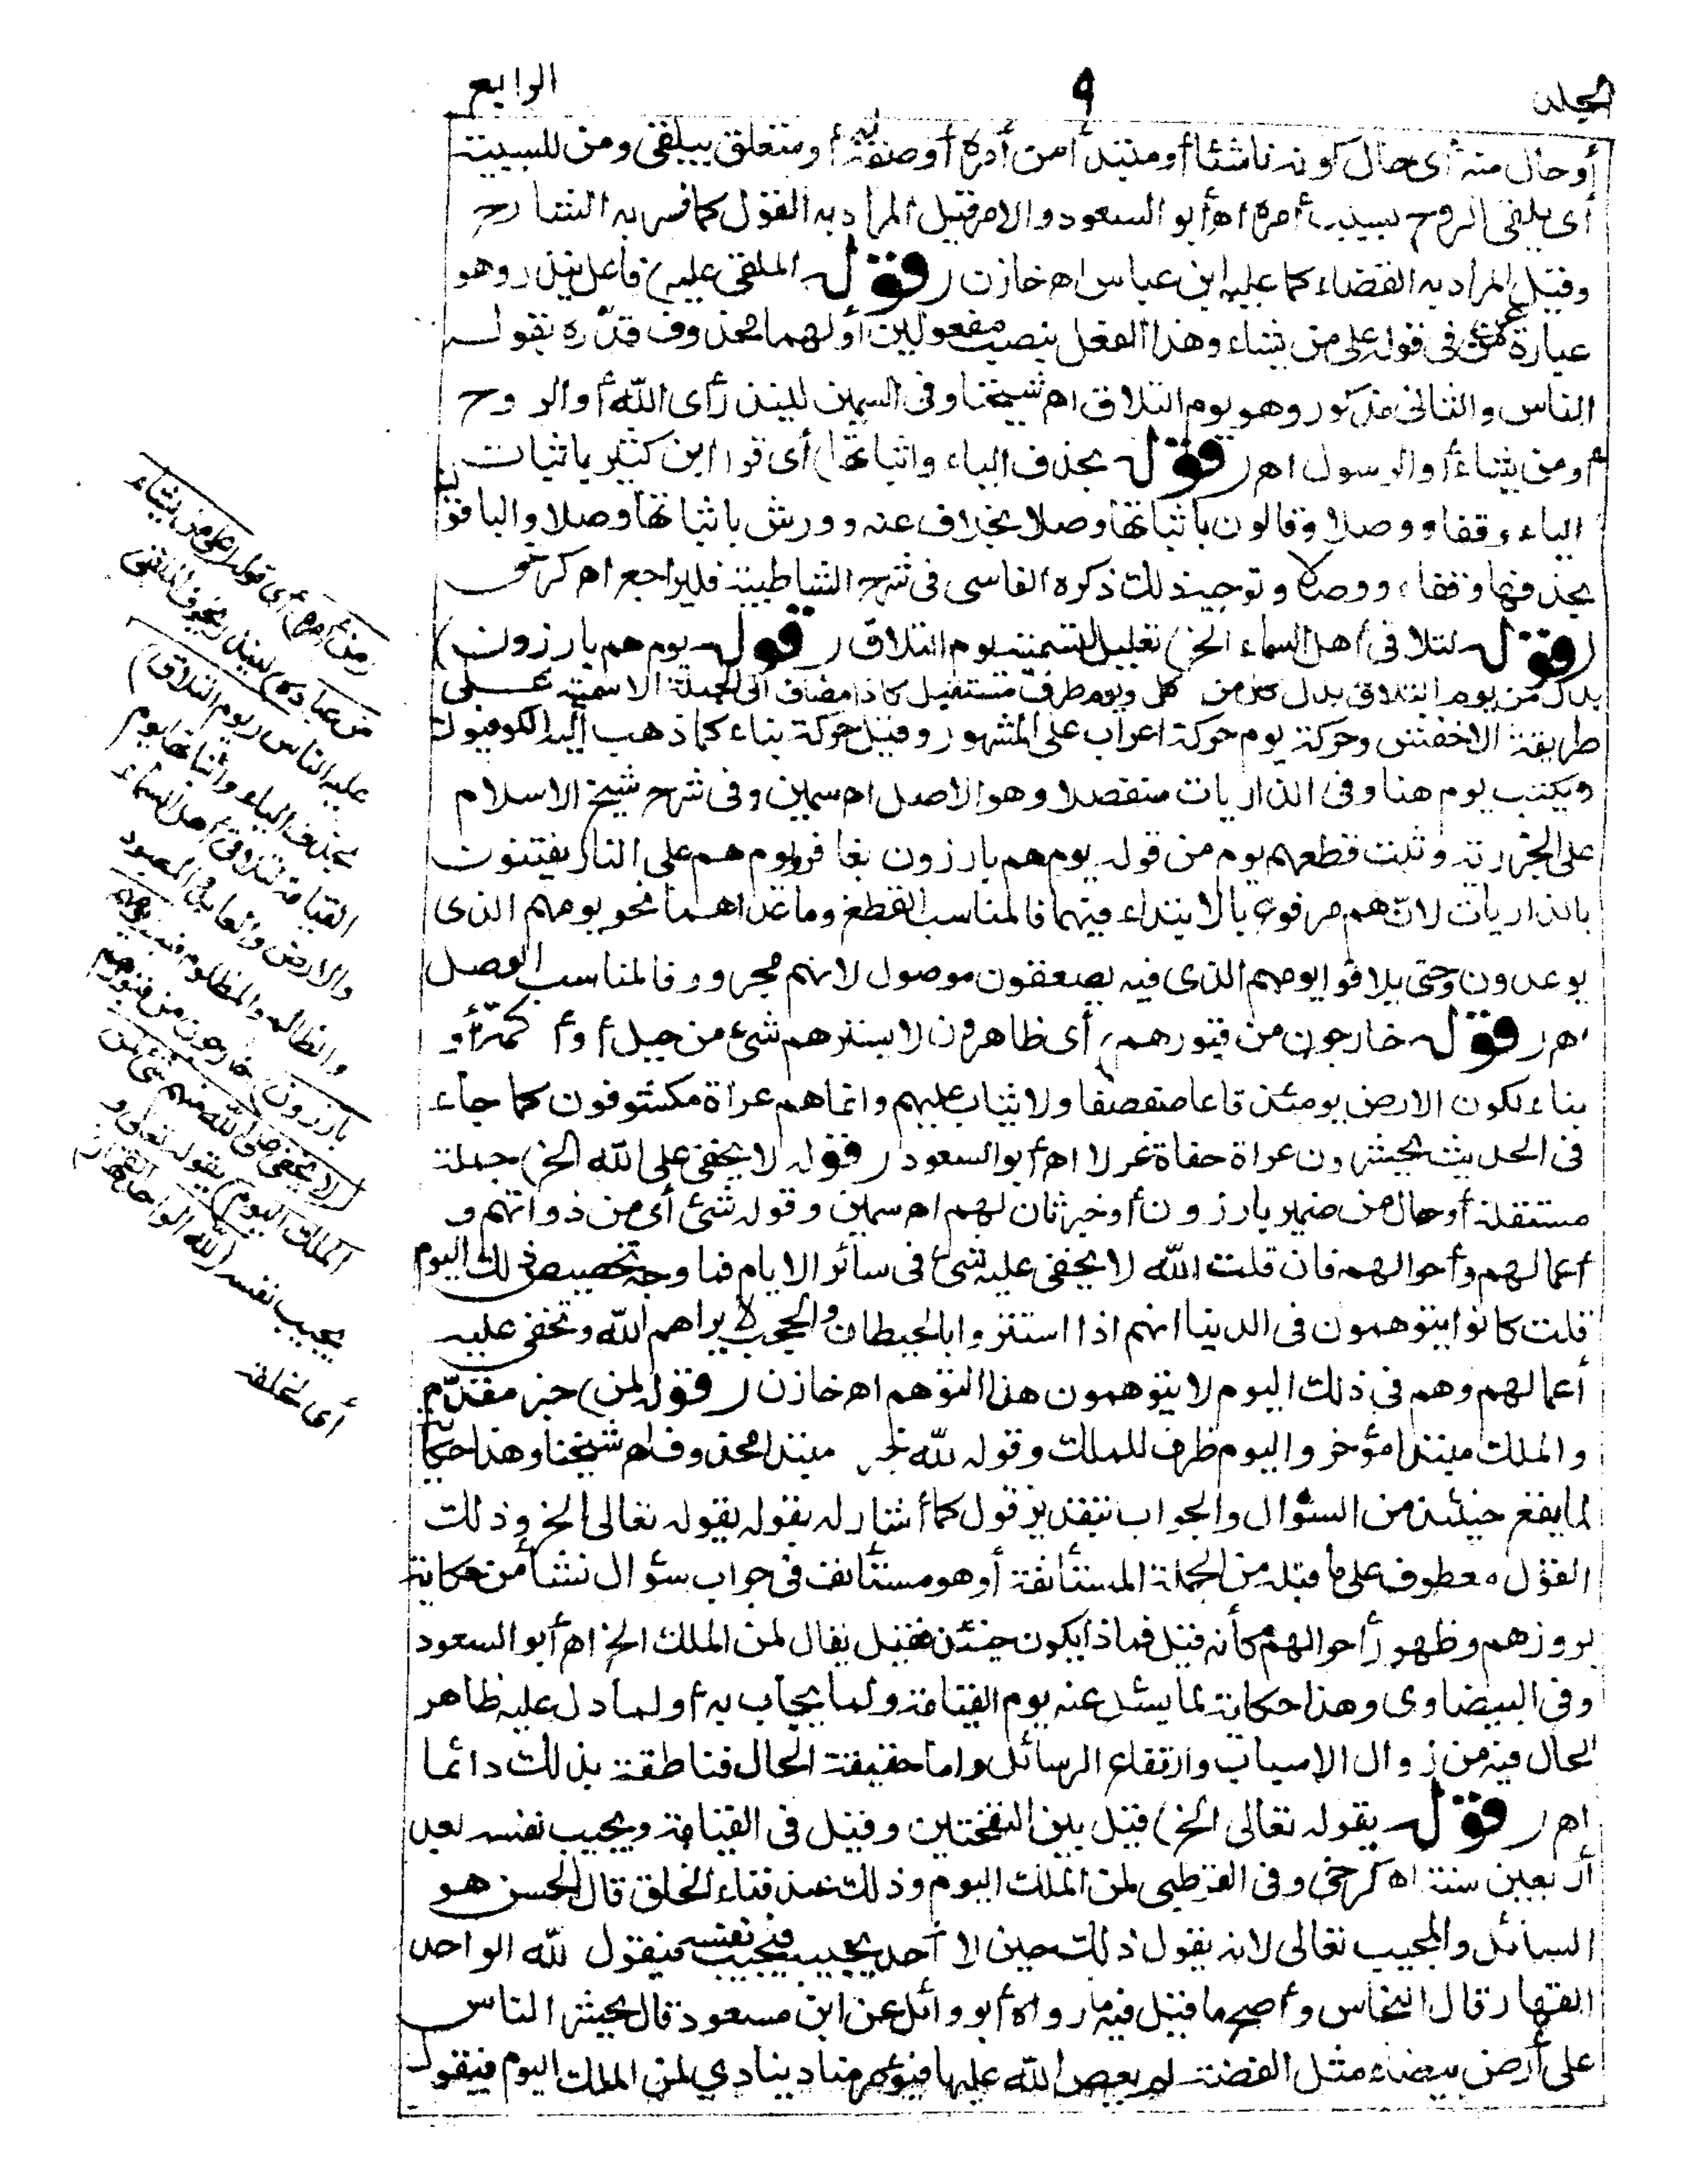 المجلد ٩ الرابع
أو حال منه أى حال كونه ناشئا أو مبتدأ من أمره أو صفة له أو متعلق بيلقى ومن للسببية
أى يلقى الروح بسبب أمره اه أبو السعود والامر قيل المراد به القول كما فسر به الشارح
وقيل المراد به القضاء كما عليه ابن عباس اه خازن (قوله الملقى عليه) فاعل ينذر وهو
عبارة عن من فى قوله على من يشاء وهذا الفعل ينصب مفعولين أولهما محذوف قدّره بقوله
الناس والثانى مذكور وهو يوم التلاق اه شيخنا وفى السمين لينذر أى الله أو الروح
أو من يشاء أو الرسول اه (قوله بحذف الياء واثباتها) أى قرأ ابن كثير باثبات
الياء وقفا ووصلا وقالون باثباتها وصلا بخلاف عنه وورش باثباتها وصلا والباقون
بحذفها وقفاء ووصلا وتوجيه ذلك ذكره الفاسى فى شرح الشاطبية فليراجع اه كرخى
(قوله لتلاقى أهل السماء الخ) تعليل لتسمية يوم التلاق (قوله يوم هم بارزون)
بدل من يوم التلاق بدل كل من كل ويوم ظرف مستقبل كاذا مضاف الى الجملة الاسمية على
طريقة الاخفش وحركة يوم حركة اعراب على المشهور وقيل حركة بناء كما ذهب اليه الكوفيون
ويكتب يوم هنا وفى الذاريات منفصلا وهو الاصل اه سمين وفى شرح شيخ الاسلام
على الجزرية وثبت قطعهم يوم من قوله يوم هم بارزون بغافر ويوم هم على النار يفتنون
بالذاريات لانّ هم مرفوع بالابتداء فيهما فالمناسب القطع وما عداهما نحو يومهم الذى
يوعدون وحتى يلاقوا يومهم الذى فيه يصعقون موصول لانهم مجرور فالمناسب الوصل
اه (قوله خارجون من قبورهم) أى ظاهرون لا يسترهم شئ من جبل أو أكمة أو
بناء لكون الارض يومئذ قاعا صفصفا ولا ثياب عليهم وانما هم عراة مكشوفون كما جاء
فى الحديث يحشرون عراة حفاة غرلا اه أبو السعود (قوله لا يخفى على الله الخ) جملة
مستقلة أو حال من ضمير بارزون أو خبر ثان لهم اه سمين وقوله شئ أى من ذواتهم و
أعمالهم وأحوالهم فان قلت الله لا يخفى عليه شئ فى سائر الايام فما وجه تخصيص ذلك اليوم
قلت كانوا يتوهمون فى الدنيا انهم اذا استتروا بالحيطان والحجب لا يراهم الله وتخفى عليه
أعمالهم وهم فى ذلك اليوم لا يتوهمون هذا التوهم اه خازن (قوله لمن) خبر مقدّم
والملك مبتدا مؤخر واليوم ظرف للملك وقوله لله خبر مبتدا محذوف اه شيخنا وهذا حكاية
لما يقع حينئذ من السؤال والجواب بتقدير قول كما أشار له بقوله يقوله تعالى الخ وذلك
القول معطوف على ما قبله من الجملة المستأنفة أو هو مستأنف فى جواب سؤال نشأ من حكاية
بروزهم وظهور أحوالهم كأنه قيل فماذا يكون حينئذ فقيل يقال لمن الملك الخ اه أبو السعود
وفى البيضاوى وهذا حكاية لما يسئل عنه يوم القيامة ولما يجاب به أو لما دل عليه ظاهر
الحال فيه من زوال الاسباب وارتفاع الرسائل واما حقيقة الحال فناطقة بذلك دائما
اه (قوله يقوله تعالى الخ) قيل بين النفختين وقيل فى القيامة ويجيب نفسه بعد
أربعين سنة اه كرخى وفى القرطبى لمن الملك اليوم وذلك عند فناء الخلق قال الحسن هو
السائل والمجيب تعالى لانه يقول ذلك حين لا أحد يجيبه فيجيب نفسه فيقول لله الواحد
القهار قال النحاس وأصح ما قيل فيه ما رواه أبو وائل عن ابن مسعود قال يحشر الناس
على أرض بيضاء مثل الفضة لم يعص الله عليها فيؤمر مناد ينادي لمن الملك اليوم فيقول
من أمره) أى قوله (على من يشاء
من عباده لينذر) يخوف الملقى
عليه الناس (يوم التلاق)
بحذف الياء واثباتها يوم
القيامة لتلاقى أهل السماء
والارض والعابد والمعبود
والظالم والمظلوم فيه (يوم هم
بارزون) خارجون من قبورهم
(لا يخفى على الله منهم شئ لمن
الملك اليوم) يقوله تعالى و
يجيب نفسه (لله الواحد القهار)
أى لخلقه